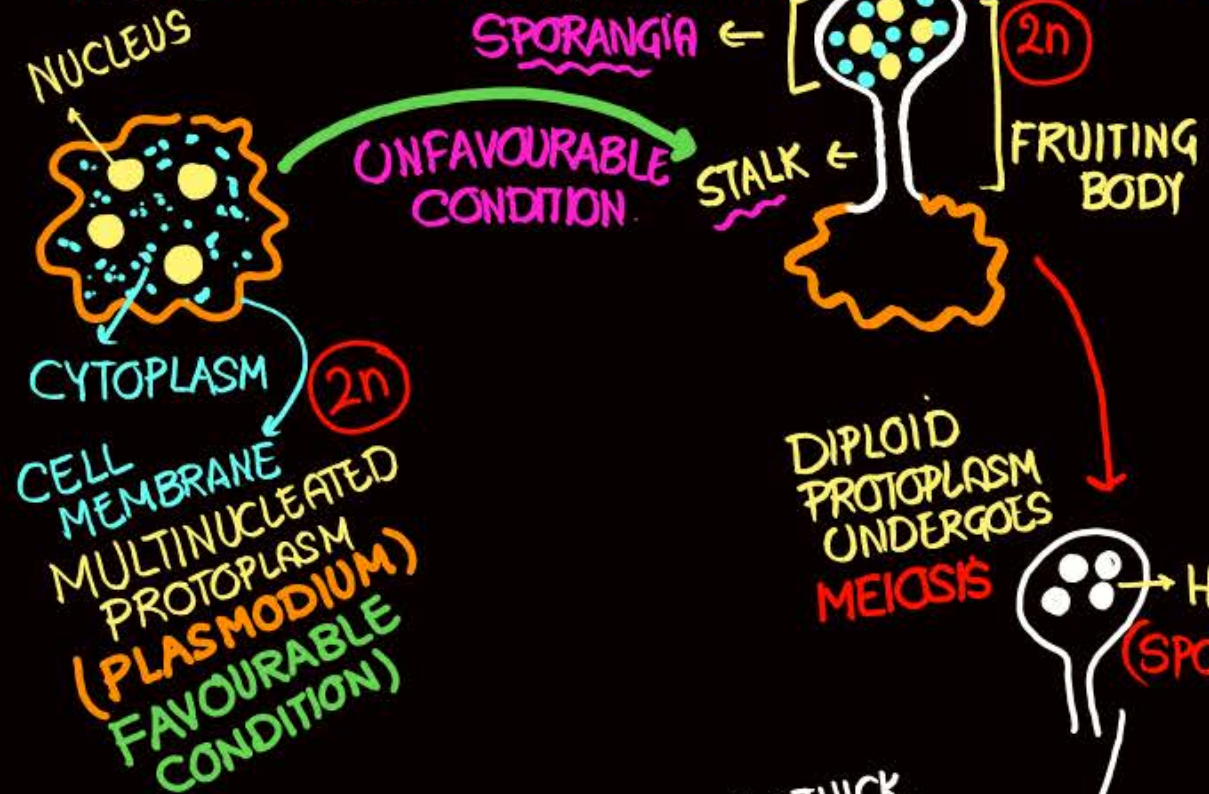 NUCLEUS
SPORANGIA
2n
UNFAVOURABLE
CONDITION
STALK
FRUITING
BODY
CYTOPLASM
2n
CELL
MEMBRANE
MULTINUCLEATED
PROTOPLASM
(PLASMODIUM)
FAVOURABLE
CONDITION)
DIPLOID
PROTOPLASM
UNDERGOES
MEIOSIS
H
(SPO
THICK